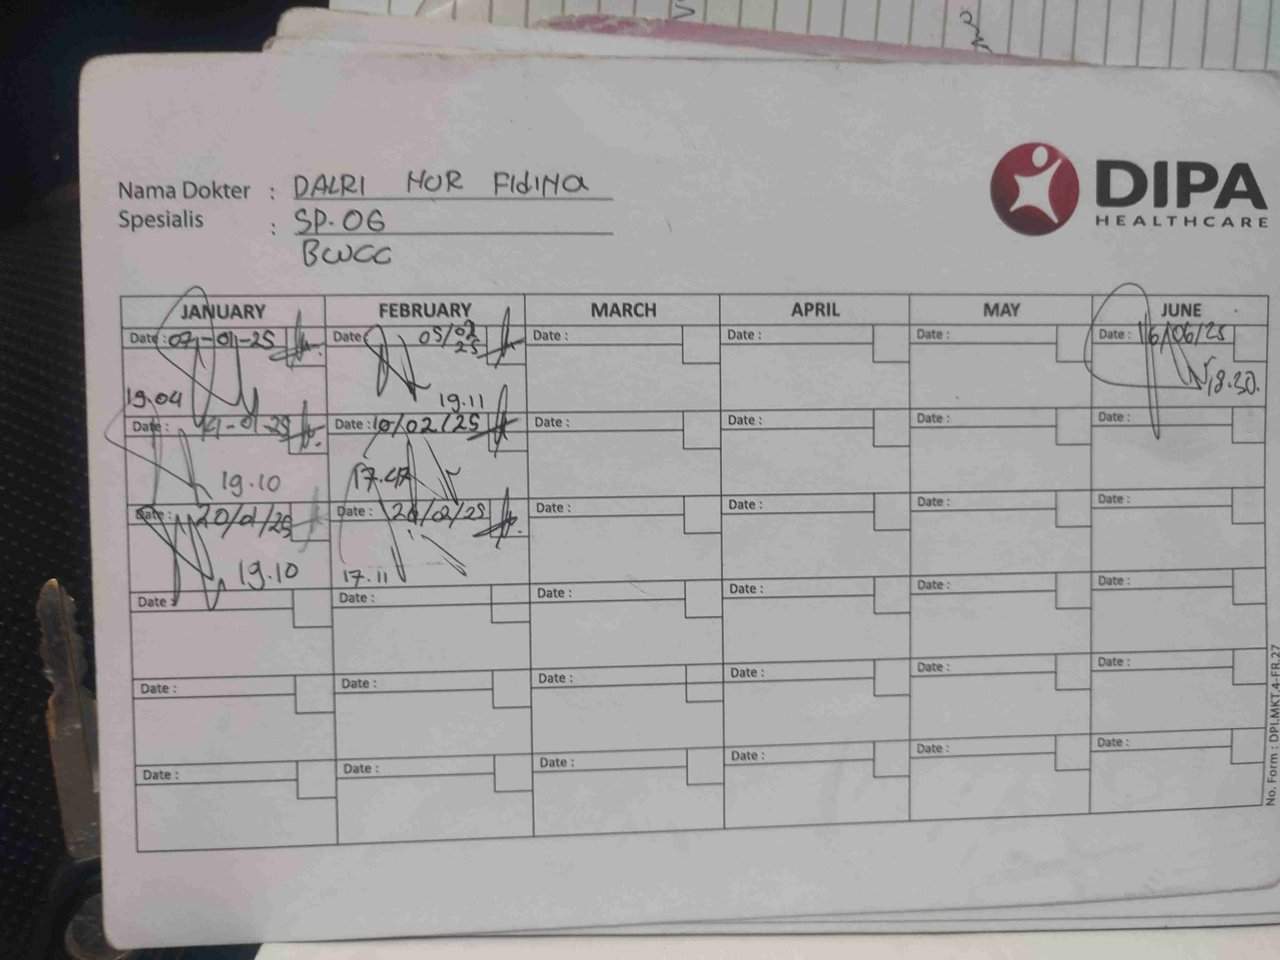 DIPA
HEALTHCARE
Nama Dokter : DALRI NUR FIdiNa
Spesialis : SP. OG
BWCC
JANUARY FEBRUARY MARCH APRIL MAY JUNE
Date : 07-01-25 Date : 05/02/25 Date : Date : Date : Date : 16/06/25
19.04 19.11 18.30.
Date : 14-01-25 Date : 10/02/25 Date : Date : Date : Date :
19.10 17.47
Date : 20/01/25 Date : 20/02/25 Date : Date : Date : Date :
19.10 17.11
Date : Date : Date : Date : Date : Date :
Date : Date : Date : Date : Date : Date :
Date : Date : Date : Date : Date : Date :
No. Form : DPI.MKT.4-FR.27